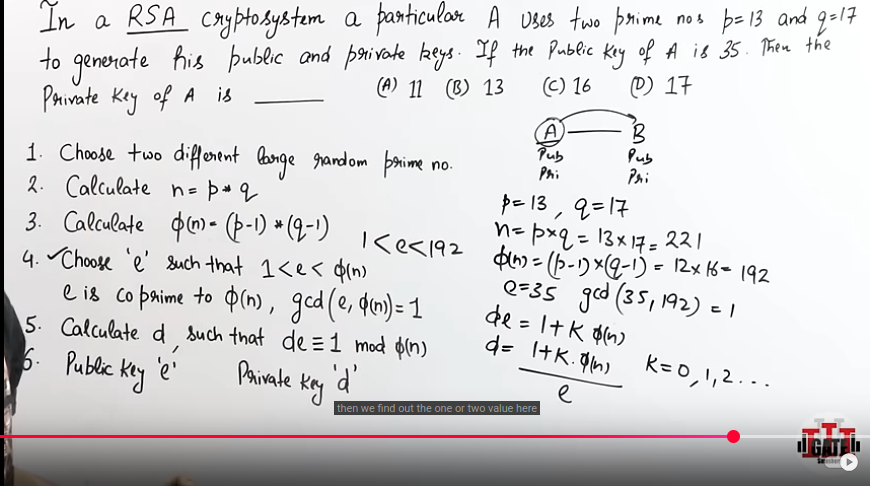 In a RSA cryptosystem a particular A uses two prime nos p=13 and q=17
to generate his public and private keys. If the Public Key of A is 35. Then the
Private Key of A is ______ (A) 11 (B) 13 (C) 16 (D) 17
1. Choose two different large random prime no.
2. Calculate n = p * q
3. Calculate ϕ(n) = (p-1) * (q-1)
1<e<192
4. ✓Choose 'e' such that 1<e<ϕ(n)
e is coprime to ϕ(n), gcd(e, ϕ(n))=1
5. Calculate d, such that de ≡ 1 mod ϕ(n)
6. Public Key 'e' Private Key 'd'
A B
Pub Pub
Pri Pri
p=13, q=17
n=p×q = 13×17 = 221
ϕ(n)=(p-1)×(q-1) = 12×16= 192
e=35 gcd(35,192) = 1
de = 1+K ϕ(n)
d= 1+K.ϕ(n) K=0,1,2...
e
then we find out the one or two value here
GATE